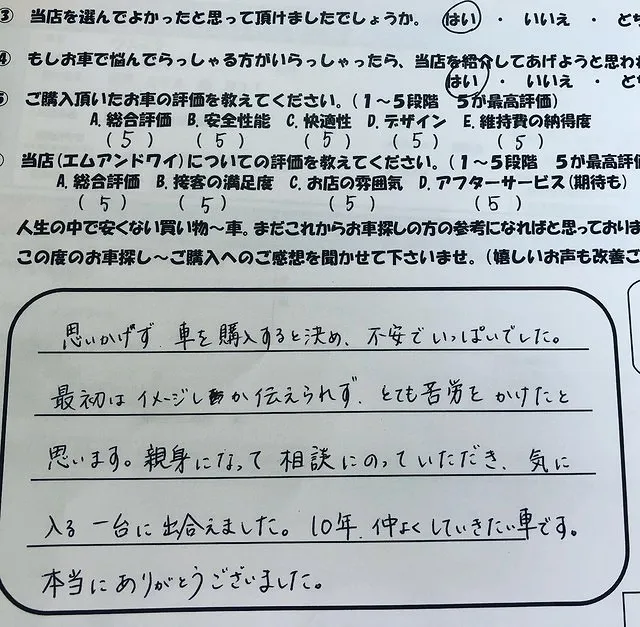 ③ 当店を選んでよかったと思って頂けましたでしょうか。 はい ・ いいえ ・ ど
もしお車で悩んでらっしゃる方がいらっしゃったら、当店を紹介してあげようと思わ
はい ・ いいえ ・ ど
ご購入頂いたお車の評価を教えてください。(1〜5段階 5が最高評価)
A. 総合評価 B. 安全性能 C. 快適性 D. デザイン E. 維持費の納得度
(5) (5) (5) (5) (5)
当店(エムアンドワイ)についての評価を教えてください。(1〜5段階 5が最高評価
A. 総合評価 B. 接客の満足度 C. お店の雰囲気 D. アフターサービス(期待も)
(5) (5) (5) (5)
人生の中で安くない買い物〜車。まだこれからお車探しの方の参考になればと思っておりま
この度のお車探し〜ご購入へのご感想を聞かせて下さいませ。(嬉しいお声も改善ご
思いかげず、車を購入すると決め、不安でいっぱいでした。
最初はイメージしか伝えられず、とても苦労をかけたと
思います。親身になって相談にのっていただき、気に
入る一台に出合えました。10年、仲よくしていきたい車です。
本当にありがとうございました。